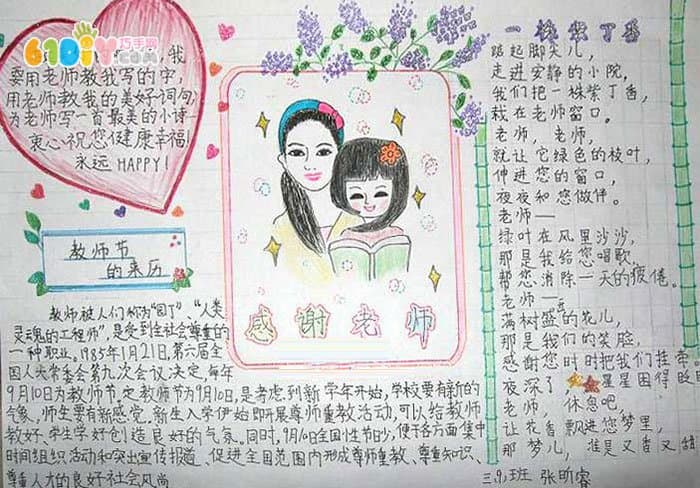 61DIY巧手网
.com
我
要用老师教我写的字,
用老师教我的美好词句,
为老师写一首最美的小诗—
衷心祝您健康幸福!
永远 HAPPY!
教师节
的来历
教师被人们称为“园丁”、“人类
灵魂的工程师”,是受到全社会尊重的
一种职业。1985年1月21日,第六届全
国人大常委会第九次会议决定,每年
9月10日为教师节。定教师节为9月10日,是考虑到新学年开始,学校要有新的
气象,师生要有新感觉。新生入学伊始即开展尊师重教活动,可以给教师
教好、学生学好创造良好的气氛。同时,9月10日全国性节日少,便于各方面集中
时间组织活动和突出宣传报道、促进全国范围内形成尊师重教、尊重知识、
尊重人才的良好社会风尚
感谢老师
一株紫丁香
踮起脚尖儿,
走进安静的小院,
我们把一株紫丁香,
栽在老师窗口。
老师,老师,
就让它绿色的枝叶,
伸进您的窗口,
夜夜和您做伴。
老师—
绿叶在风里沙沙,
那是我给您唱歌,
帮您消除一天的疲倦。
老师—
满树盛的花儿,
那是我们的笑脸,
感谢您时时把我们挂牵
夜深了,星星困得眨
老师,休息吧,
让花香飘进您梦里,
那梦儿,准是又香又甜
三.9班 张昕睿